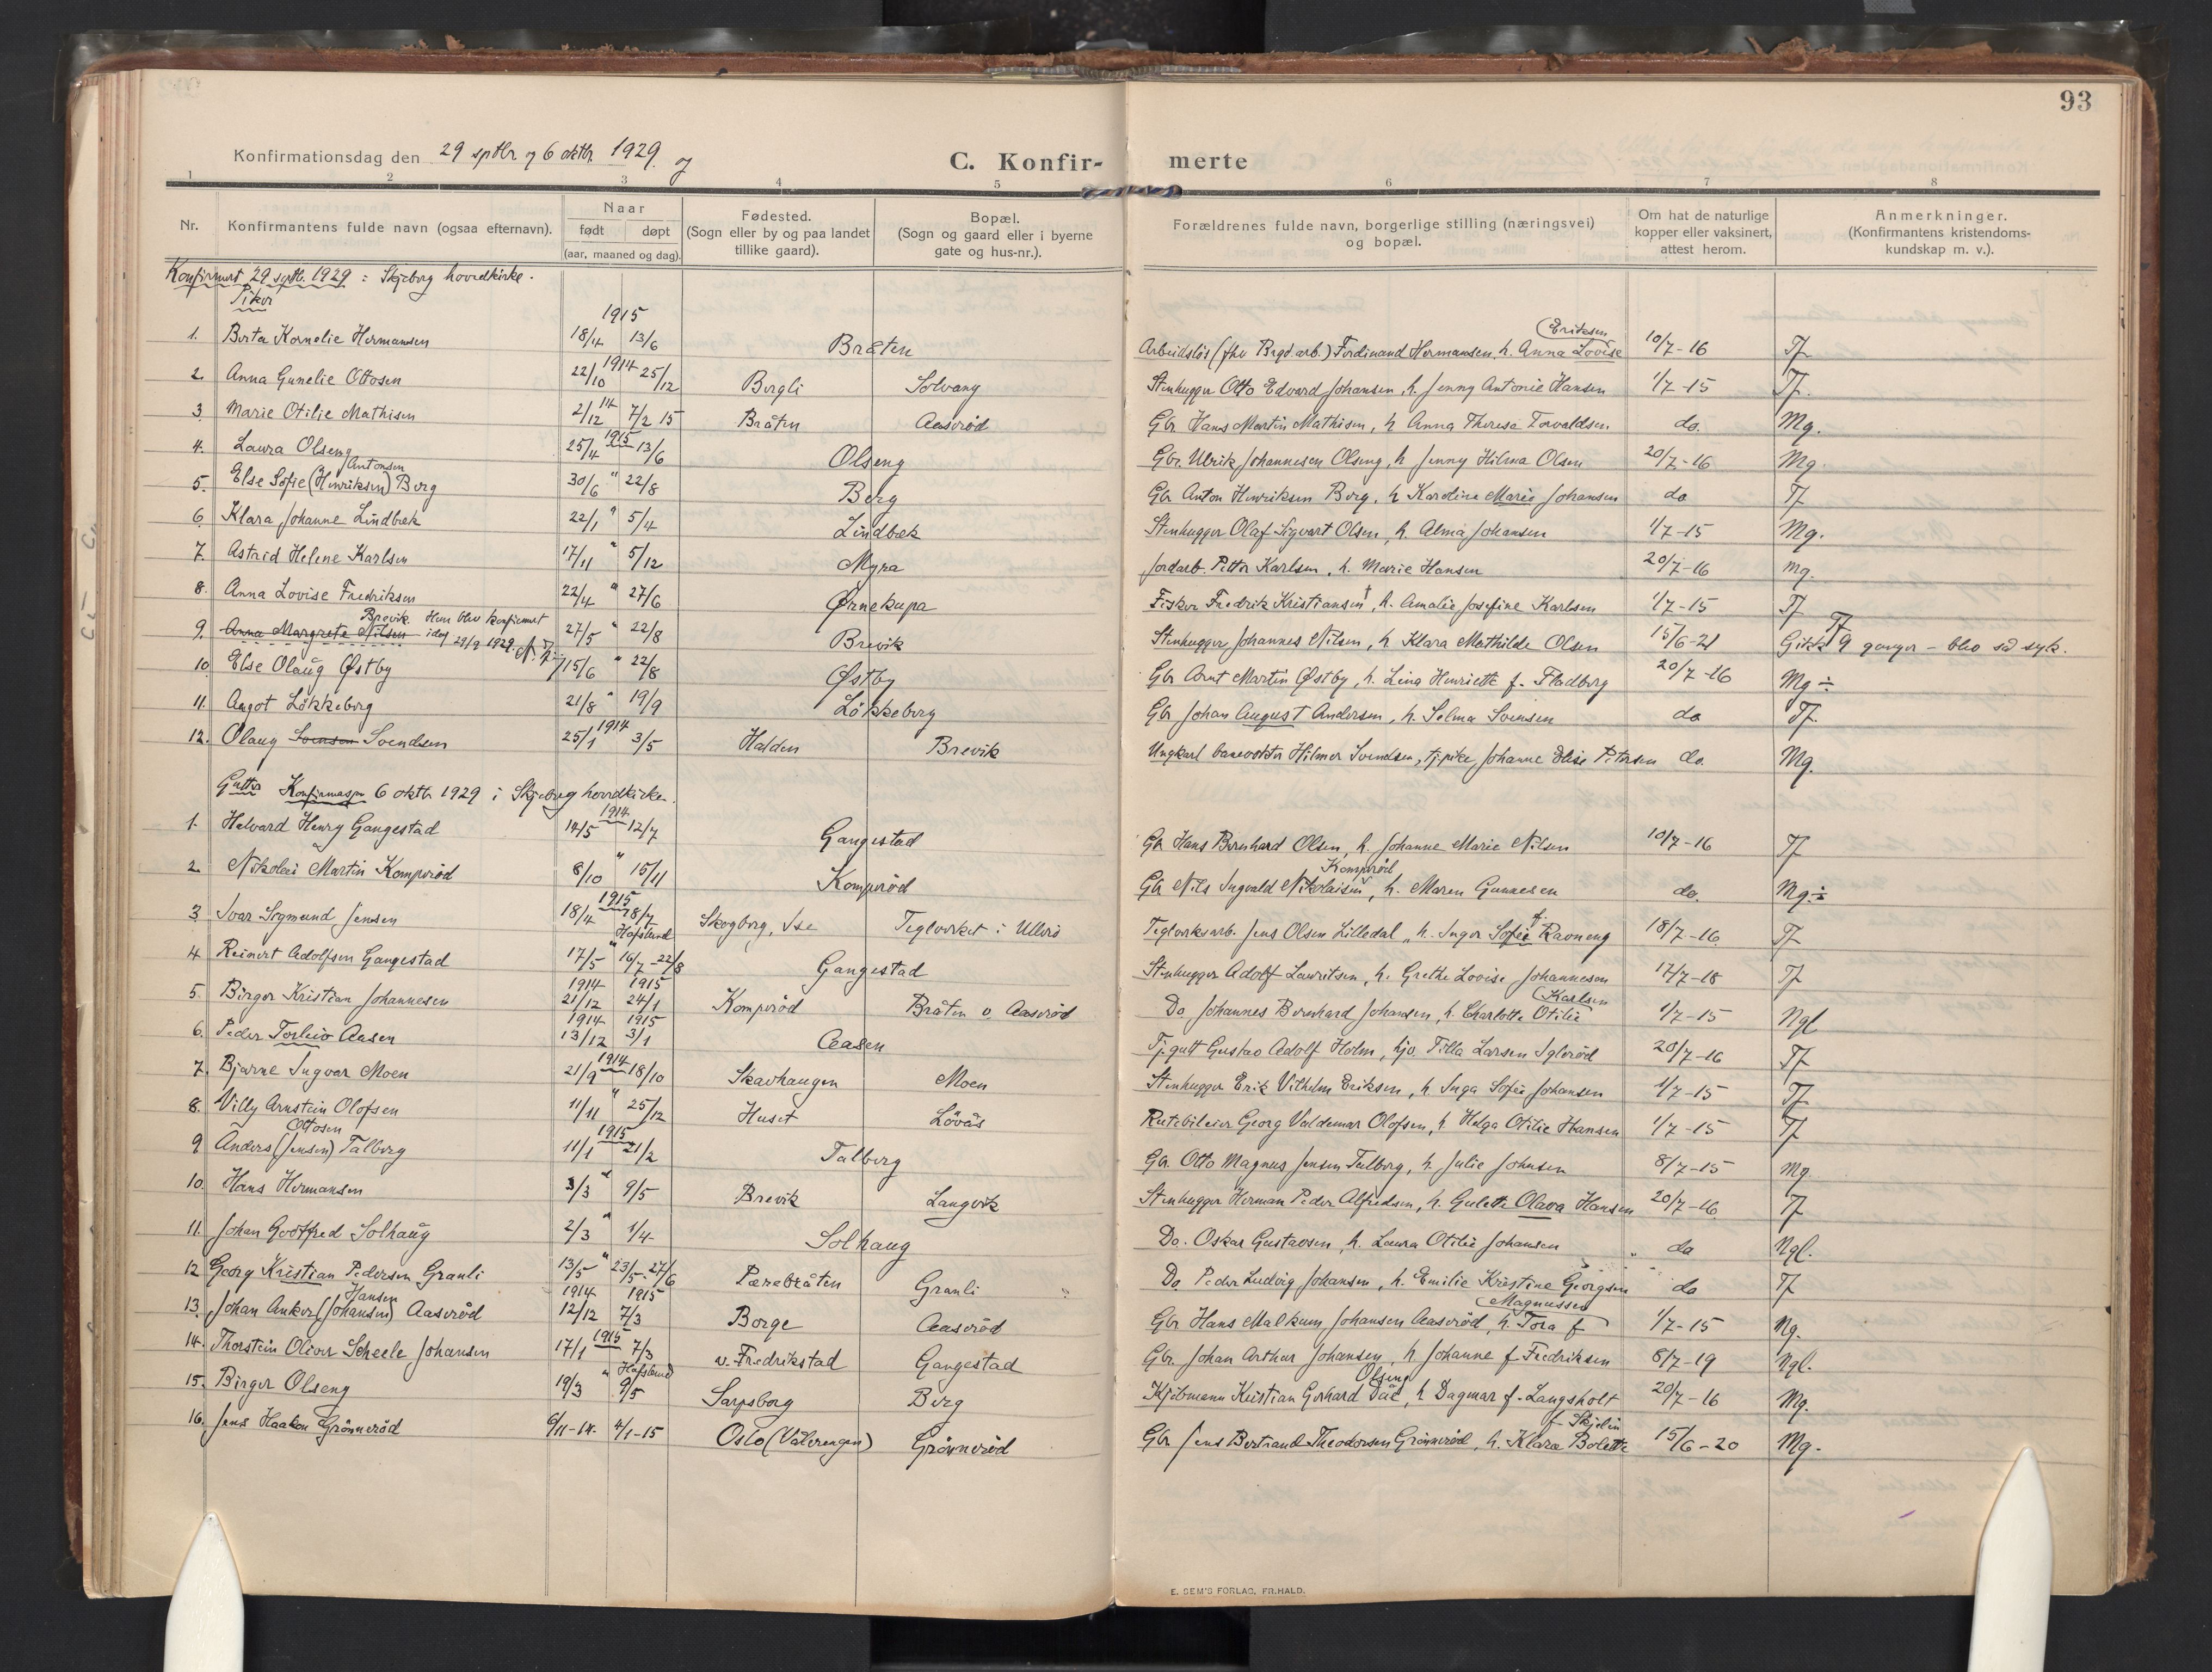 93
Konfirmationsdag den 29 sptbr og 6 oktbr. 1929. og
C. Konfir- merte
1 2 3 4 5 6 7 8
Nr.
Konfirmantens fulde navn (ogsaa efternavn).
Naar
født døpt
(aar, maaned og dag).
Fødested.
(Sogn eller by og paa landet
tillike gaard).
Bopæl.
(Sogn og gaard eller i byerne
gate og hus-nr.).
Forældrenes fulde navn, borgerlige stilling (næringsvei)
og bopæl.
Om hat de naturlige
kopper eller vaksinert,
attest herom.
Anmerkninger.
(Konfirmantens kristendoms-
kundskap m. v.).
Konfirmert 29 septb. 1929 i Skjeberg hovedkirke.
Piker
1915
1. Berta Kornelie Hermansen 18/4 13/6 Bråten Arbeidsløs (fhv Brgd.arb.) Ferdinand Hermansen, h. Anna Lovise Eriksen 10/7-16 Tf
2. Anna Gunelie Ottosen 22/10 1914 25/12 Bergli Solvang Stenhugger Otto Edvard Johansen, h. Jenny Antonie Hansen 1/7-15 Tf.
3 Marie Otilie Mathisen 2/12 14 7/2 15 Bråten Aaserød Gbr Hans Martin Mathisen, h Anna Theresa Torvaldsen do. Mg.
4. Laura Olseng 25/4 1915 13/6 Olseng Gbr. Ulrik Johannesen Olseng, h Jenny Hilma Olsen 20/7-16 Mg.
Antonsen
5. Else Sofie (Henriksen) Berg 30/6 " 22/8 Berg Gbr Anton Henriksen Berg, h Karoline Marie Johansen do Tf
6. Klara Johanne Lindbæk 22/1 " 5/4 Lindbæk Stenhugger Olaf Sigvart Olsen, h. Alma Johansen 1/7-15 Mg.
7. Astrid Helene Karlsen 17/11 " 5/12 Myra Jordarb. Petter Karlsen, h. Marie Hansen 20/7-16 Mg.
8. Anna Lovise Fredriksen 22/4 " 27/6 Ørnekupa Fisker Fredrik Kristiansen †, h. Amalie Josefine Karlsen 1/7-15 Tf
Brevik. Hun blev konfirmert
9. Anna Margrete Nilsen idag 29/9 1929. 27/5 " 22/8 Brevik Stenhugger Johannes Nilsen, h Klara Mathilde Olsen 15/6-21 Tf Gikk 9 ganger – blev så syk.
10. Else Olaug Østby 15/6 " 22/8 Østby Gbr Arnt Martin Østby, h. Lina Henriette f. Fladberg 20/7-16 Mg ÷
11. Aagot Løkkeberg 21/8 " 19/9 Løkkeberg Gbr Johan August Andersen, h. Selma Svensen do Tf.
12. Olaug Svensen Svendsen 25/1 1914 3/5 Halden Brevik Ungkar banevokter Hilmer Svendsen, tj.pike Johanne Elise Petersen do. Mg.
Gutter Konfirmasjon 6 oktb 1929 i Skjeberg hovedkirke.
1. Halvard Henry Gangestad 14/5 1914 12/7 Gangestad Gbr Hans Bernhard Olsen, h. Johanne Marie Nilsen 10/7-16 Tf
2. Nikolai Martin Komperød 8/10 " 15/11 Komperød Gbr Nils Ingvald Nikolaisen Komperød, h. Maren Gunnesen do. Mg.÷
3 Ivar Sigmund Jensen 18/4 1915 18/7 Skogborg, Ise Teglverket i Ullerø Teglverksarb. Jens Olsen Lilledal, h. Inger Sofie f. Ravneng 18/7-16 Tf
Hafslund
4. Reinert Adolfsen Gangestad 17/5 " 16/7-22/8 Gangestad Stenhugger Adolf Lauritsen, h. Grethe Lovise Johannesen 17/7-18 Tf
1914 1915
5. Birger Kristian Johannesen 21/12 24/1 Komperød Bråten v. Aaserød Do Johannes Bernhard Johansen, h. Charlotte Otilie Karlsen 1/7-15 Ngl
1914 1915
6. Peder Torleiv Aasen 13/12 3/1 Aasen Tj.gutt Gustav Adolf Holm, tj.p. Tilla Larsen Iglerød 20/7-16 Tf
7. Bjarne Ingvar Moen 21/9 1914 18/10 Skavhaugen Moen Stenhugger Erik Vilhelm Eriksen, h Inga Sofie Johansen 1/7-15 Tf
8. Villy Arnstein Olofsen 11/11 " 25/12 Huset Løvås Rutebileier Georg Valdemar Olofsen, h Helga Otilie Hansen 1/7-15 Tf
Ottosen
9 Anders (Jensen) Talberg 11/1 1915 21/2 Talberg Gbr. Otto Magnus Jensen Talberg, h. Julie Johnsen 8/7-15 Mg
10. Hans Hermansen 3/3 " 9/5 Brevik Langvik Stenhugger Herman Peder Alfredsen, h. Gulette Olava Hansen 20/7-16 Tf
11. Johan Godtfred Solhaug 2/3 " 1/4 Solhaug Do. Oskar Gustavsen, h. Laura Otilie Johansen do Ngl.
12 Georg Kristian Pedersen Granli 13/5 " 23/5-27/6 Pærebråten Granli Do. Peder Ludvig Johansen, h. Emilie Kristine Georgsen do Tf
Hansen 1914 1915
13. Johan Anker (Johansen) Aaserød 12/12 7/3 Borge Aaserød Gbr Hans Malkum Johansen Aaserød, h. Tora f Magnussen 1/7-15 Mg.
14. Thorstein Oliver Scheele Johansen 17/1 1915 7/3 v. Fredrikstad Gangestad Gbr. Johan Arthur Johansen, h Johanne f. Fredriksen 8/7-19 Ngl.
Hafslund
15. Birger Olseng 19/3 " 9/5 Sarpsborg Berg Kjøbmann Kristian Gerhard Olseng, h Dagmar f. Langsholt 20/7-16 Mg.
16. Jens Haakon Grønnerød 6/11-14. 4/1-15 Oslo (Vålerengen) Grønnerød Gbr Jens Bertrand Theodorsen Grønnerød, h. Klara Bolette f. Skjelin 15/6-20 Mg.
E. SEM'S FORLAG, FR.HALD.